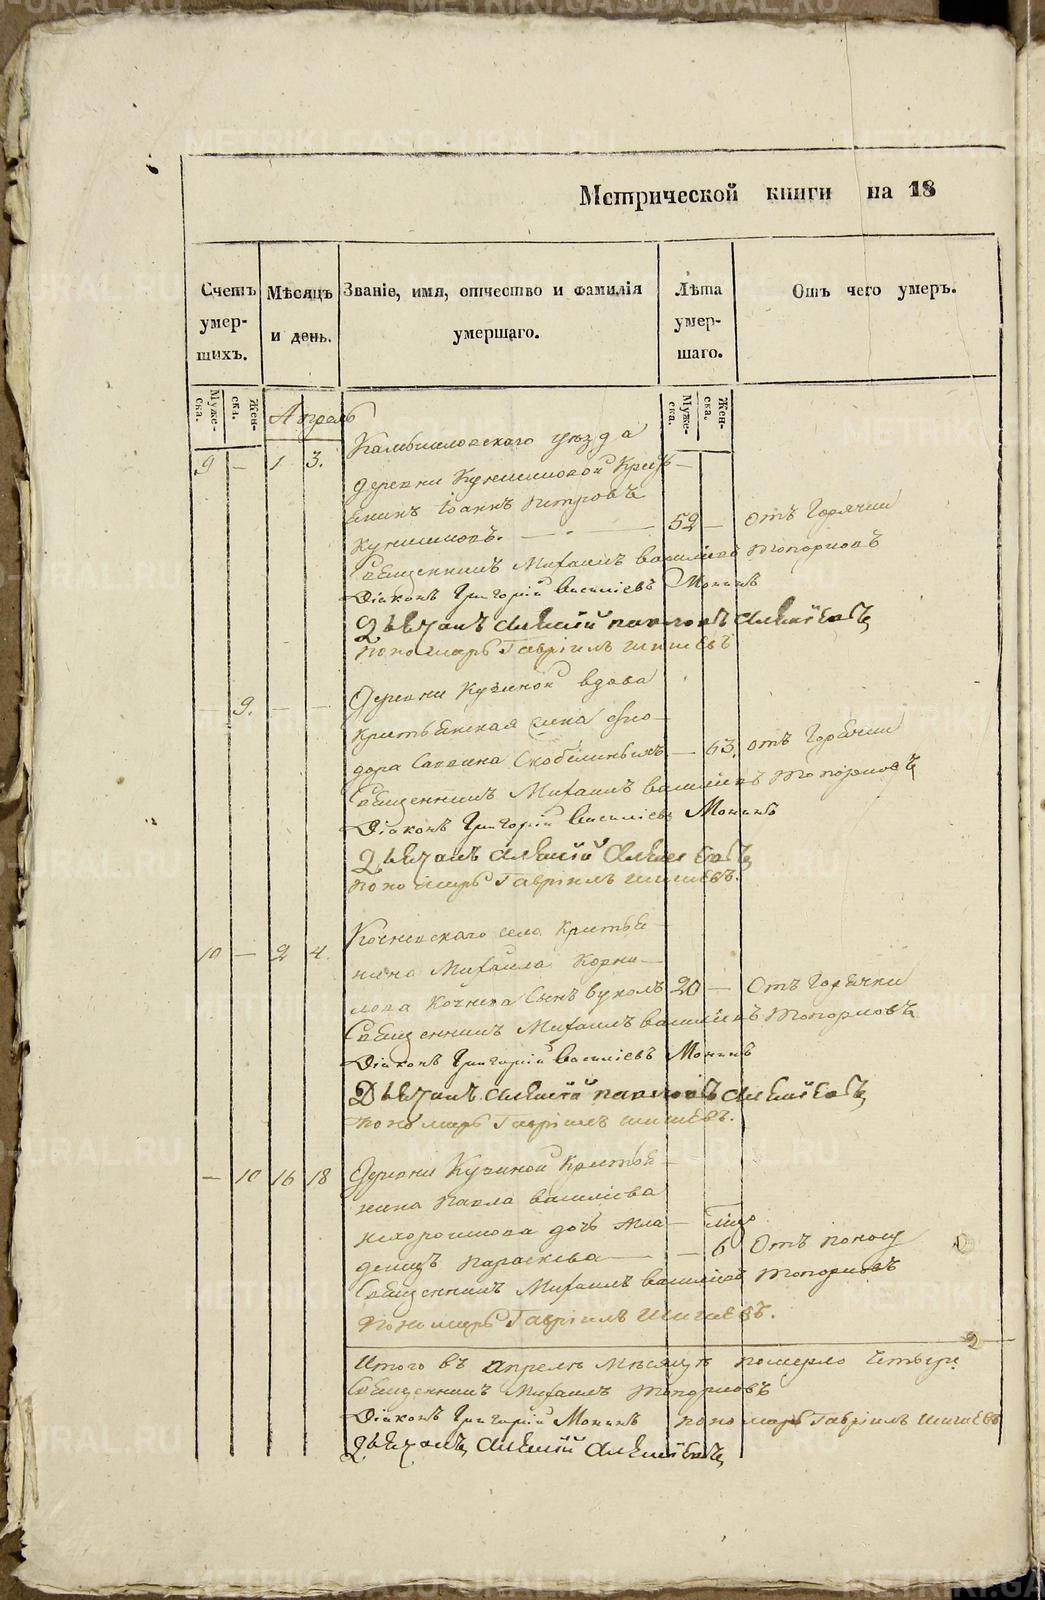 METRIKI.GASO-URAL.RU
Метрической книги на 18
Счетъ умер- шихъ.
Мѣсяцъ и день.
Званіе, имя, отчество и фамилія умершаго.
Лѣта умер- шаго.
Отъ чего умеръ.
Муже- ска.
Жен- ска.
Муже- ска.
Жен- ска.
Апрель
9 — 1 3. Камышловскаго уѣзда
деревни Кунишиловой Крестья-
нинъ Іоаннъ Петровъ
— 52 — отъ Горячки
Священникъ Михаилъ Василіевъ Топорковъ
Діаконъ Григорій Василіевъ Монинъ
Дьячокъ Алексій Павловъ Алексіевъ
пономарь Гавріилъ Шишевъ
— 9. — — Деревни Кучиной вдова
крестьянская жена Фео-
дора Саввина — 63. отъ Горячки
Священникъ Михаилъ Василіевъ Топорковъ
Діаконъ Григорій Василіевъ Монинъ
Дьячокъ Алексій Алексіевъ
пономарь Гавріилъ Шишевъ.
10 — 2 4. Кочневскаго села Крестья-
нина Михаила Корни-
лова Кочнева Сынъ Вуколъ 20 — Отъ Горячки
Священникъ Михаилъ Василіевъ Топорковъ
Діаконъ Григорій Василіевъ Монинъ
Дьячокъ Алексій Павловъ Алексіевъ
пономарь Гавріилъ Шишевъ.
— 10 16 18 Деревни Кучиной Крестья-
нина Павла Василіева
Нехорошкова дочь мла-
денецъ Параскева — — 6 Отъ поносу
Священникъ Михаилъ Василіевъ Топорковъ
Пономарь Гавріилъ Шишевъ.
2
Итого въ апрелѣ мѣсяцѣ померло четыре
Священникъ Михаилъ Топорковъ
Діаконъ Григорій Монинъ пономарь Гавріилъ Шишевъ
Дьячокъ Алексій Алексіевъ